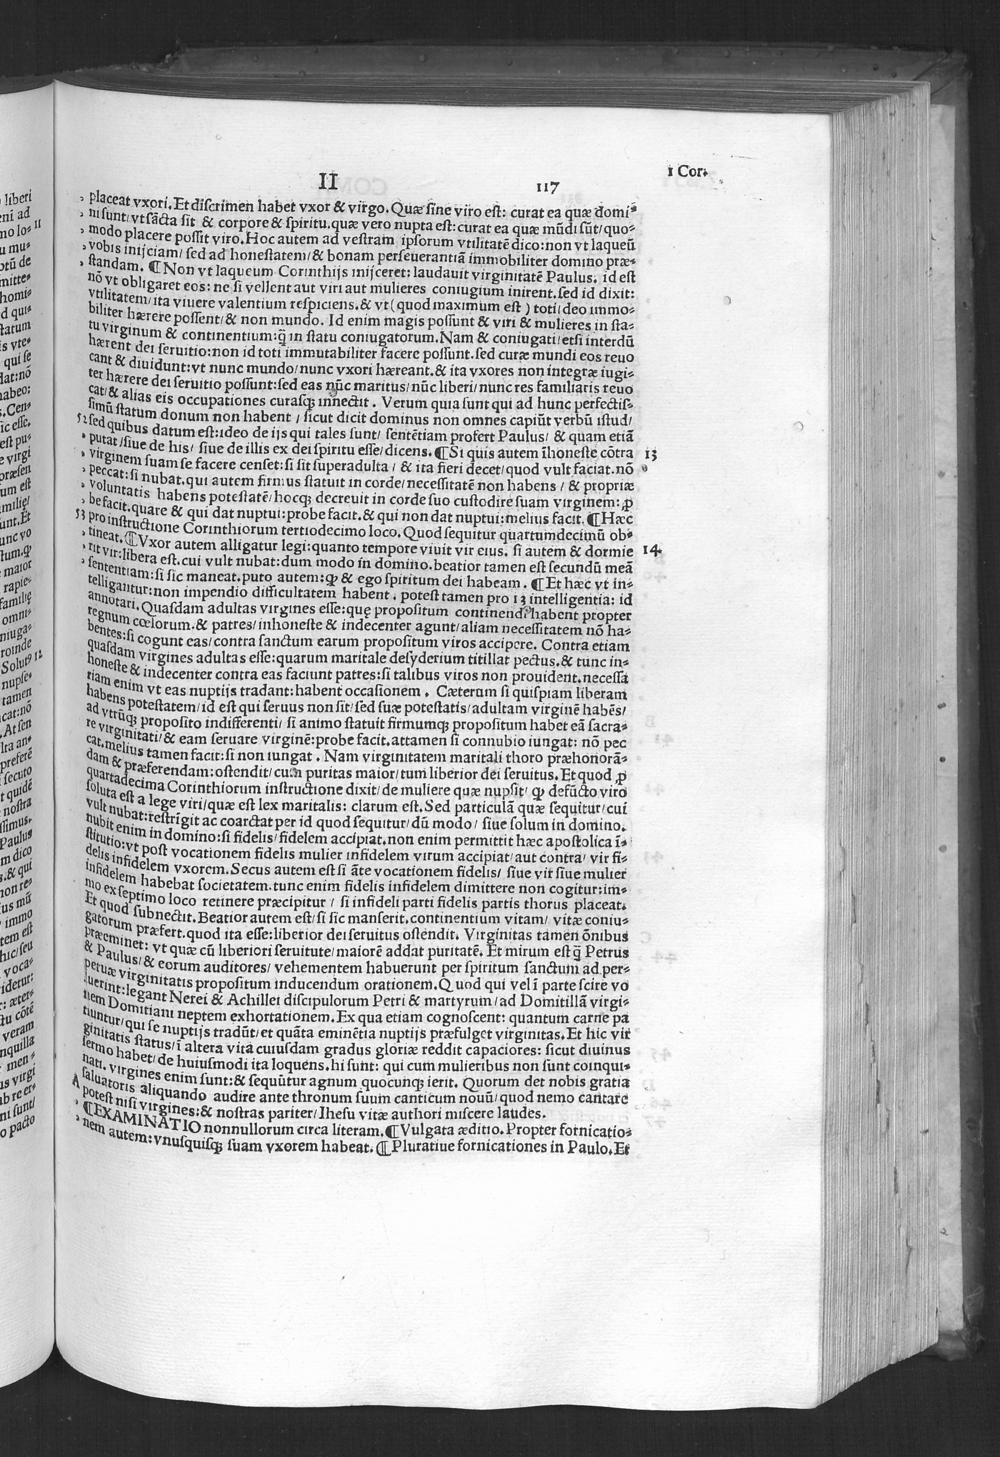 II
117
1 Cor.
placeat vxori. Et discrimen habet vxor & virgo. Quæ sine viro est: curat ea quæ domi⸗
ni sunt/ vt sācta sit & corpore & spiritu. quæ vero nupta est: curat ea quæ mūdi sūt/ quo⸗
modo placere possit viro. Hoc autem ad vestram ipsorum vtilitatē dico: non vt laqueū
vobis inijciam/ sed ad honestatem/ & bonam perseuerantiā immobiliter domino præ⸗
standam. ¶ Non vt laqueum Corinthijs inijceret: laudauit virginitatē Paulus. id est
nō vt obligaret eos: ne si vellent aut viri aut mulieres coniugium inirent. sed id dixit:
vtilitatem/ ita viuere valentium respiciens. & vt ( quod maximum est ) toti/ deo immo⸗
biliter hærere possent/ & non mundo. Id enim magis possunt & viri & mulieres in sta⸗
tu virginum & continentium: q̄ in statu coniugatorum. Nam & coniugati/ etsi interdū
hærent dei seruitio: non id toti immutabiliter facere possunt. sed curæ mundi eos reuo
cant & diuidunt: vt nunc mundo/ nunc vxori hæreant. & ita vxores non integræ iugi⸗
ter hærere dei seruitio possunt: sed eas nūc maritus/ nūc liberi/ nunc res familiaris reuo
cat/ & alias eis occupationes curasq; innectit. Verum quia sunt qui ad hunc perfectis⸗
simū statum donum non habent / sicut dicit dominus non omnes capiūt verbū istud/
52 sed quibus datum est: ideo de ijs qui tales sunt/ sentētiam profert Paulus/ & quam etiā
putat/ siue de his/ siue de illis ex dei spiritu esse/ dicens. ¶ Si quis autem īhoneste cōtra 13
virginem suam se facere censet: si sit superadulta / & ita fieri decet/ quod vult faciat. nō
peccat: si nubat. qui autem firmus statuit in corde/ necessitatē non habens / & propriæ
voluntatis habens potestatē/ hocq; decreuit in corde suo custodire suam virginem: ꝓ
be facit. quare & qui dat nuptui: probe facit. & qui non dat nuptui: melius facit. ¶ Hæc
53 pro instructione Corinthiorum tertiodecimo loco. Quod sequitur quartumdecimū ob⸗
tineat. ¶ Vxor autem alligatur legi: quanto tempore viuit vir eius. si autem & dormie 14.
rit vir: libera est. cui vult nubat: dum modo in domino. beatior tamen est secundū meā
sententiam: si sic maneat. puto autem: qꝫ & ego spiritum dei habeam. ¶ Et hæc vt in⸗
telligantur: non impendio difficultatem habent. potest tamen pro 13 intelligentia: id
annotari. Quasdam adultas virgines esse: quę propositum continendi habent propter
regnum cœlorum. & patres/ inhoneste & indecenter agunt/ aliam necessitatem nō ha⸗
bentes: si cogunt eas/ contra sanctum earum propositum viros accipere. Contra etiam
quasdam virgines adultas esse: quarum maritale desyderium titillat pectus. & tunc in⸗
honeste & indecenter contra eas faciunt patres: si talibus viros non prouident. necessa
riam enim vt eas nuptijs tradant: habent occasionem. Cæterum si quispiam liberam
habens potestatem/ id est qui seruus non sit/ sed suæ potestatis/ adultam virginē habēs/
ad vtrūq; proposito indifferenti/ si animo statuit firmumq; propositum habet eā sacra⸗
re virginitati/ & eam seruare virginē: probe facit. attamen si connubio iungat: nō pec
cat. melius tamen facit: si non iungat. Nam virginitatem maritali thoro præhonorā⸗
dam & præferendam: ostendit/ cum puritas maior/ tum liberior dei seruitus. Et quod ꝓ
quartadecima Corinthiorum instructione dixit/ de muliere quæ nupsit/ qꝫ defūcto viro
soluta est a lege viri/ quæ est lex maritalis: clarum est. Sed particulā quæ sequitur/ cui
vult nubat: restrīgit ac coarctat per id quod sequitur/ dū modo/ siue solum in domino.
nubit enim in domino: si fidelis/ fidelem accipiat. non enim permittit hæc apostolica ī⸗
stitutio: vt post vocationem fidelis mulier infidelem virum accipiat/ aut contra/ vir fi⸗
delis infidelem vxorem. Secus autem est si āte vocationem fidelis/ siue vir siue mulier
infidelem habebat societatem. tunc enim fidelis infidelem dimittere non cogitur: im⸗
mo ex septimo loco retinere præcipitur / si infideli parti fidelis partis thorus placeat.
Et quod subnectit. Beatior autem est/ si sic manserit. continentium vitam/ vitæ coniu⸗
gatorum præfert. quod ita esse: liberior dei seruitus ostendit. Virginitas tamen ōnibus
præeminet: vt quæ cū liberiori seruitute/ maiorē addat puritatē. Et mirum est q̄ Petrus
& Paulus/ & eorum auditores/ vehementem habuerunt per spiritum sanctum ad per⸗
petuæ virginitatis propositum inducendum orationem. Quod qui vel ī parte scire vo
luerint: legant Nerei & Achillei discipulorum Petri & martyrum/ ad Domitillā virgi⸗
nem Domitiani neptem exhortationem. Ex qua etiam cognoscent: quantum carne pa
tiuntur/ qui se nuptijs tradūt/ et quāta eminētia nuptijs præfulget virginitas. Et hic vir
ginitatis status/ ī altera vita cuiusdam gradus gloriæ reddit capaciores: sicut diuinus
sermo habet/ de huiusmodi ita loquens. hi sunt: qui cum mulieribus non sunt coinqui⸗
nati. virgines enim sunt: & sequūtur agnum quocunq; ierit. Quorum det nobis gratia
A saluatoris aliquando audire ante thronum suum canticum nouū/ quod nemo cantare
potest nisi virgines: & nostras pariter/ Ihesu vitæ authori miscere laudes.
¶ EXAMINATIO nonnullorum circa literam. ¶ Vulgata æditio. Propter fornicatio⸗
nem autem: vnusquisq; suam vxorem habeat. ¶ Pluratiue fornicationes in Paulo. Et